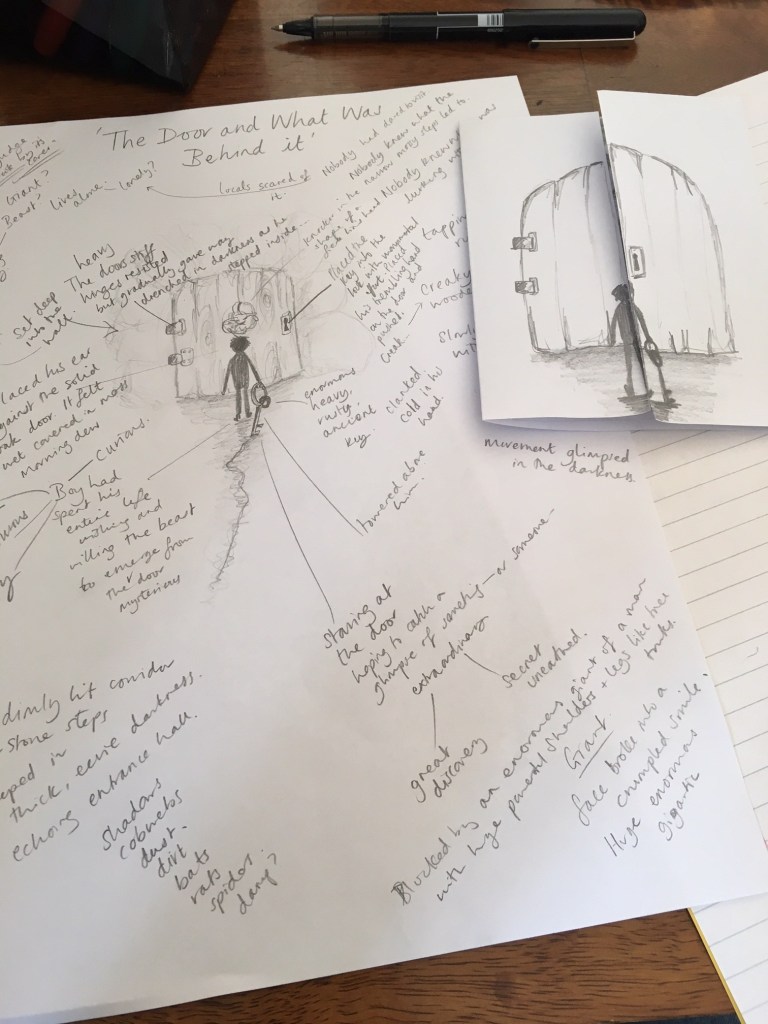 'The Door and What Was
Behind it'
Giant?
Beast?
lives alone - lonely?
locals scared of
it.
Nobody had dared to
Nobody knew what the
knocker in the narrow mossy steps led to.
shape of a
Nobody knew
was
lurking
heavy
The door stiff
hinges resisted
but gradually gave way
drenched in darkness as he
stepped inside...
set deep
into the
wall.
placed the
key into the
lock with monumental
effort, placed
his trembling hand
on the door and
pushed.
creak...
tapping
creaky
wooden
slowly
laced his ear
against the solid
oak door. It felt
wet covered in moss
morning dew
enormous
heavy
rusty
ancient
key.
clanked
cold in his
hand.
movement glimpsed
in the darkness.
curious.
Boy had
spent his
entire life
wishing and
willing the beast
to emerge from
the door
mysterious
towered above
him.
staring at
the door
hoping to catch a
glimpse of something - or someone -
extraordinary
secret
unearthed.
great
discovery
dimly lit corridor
stone steps
eped in
thick, eerie darkness.
echoing entrance hall.
shadows
cobwebs
dust.
dirt
bats
rats
spiders.
damp?
Blocked by an enormous giant of a man
with huge powerful shoulders + legs like tree
trunks.
Giant
face broke into a
crumpled smile.
Huge enormous
gigantic